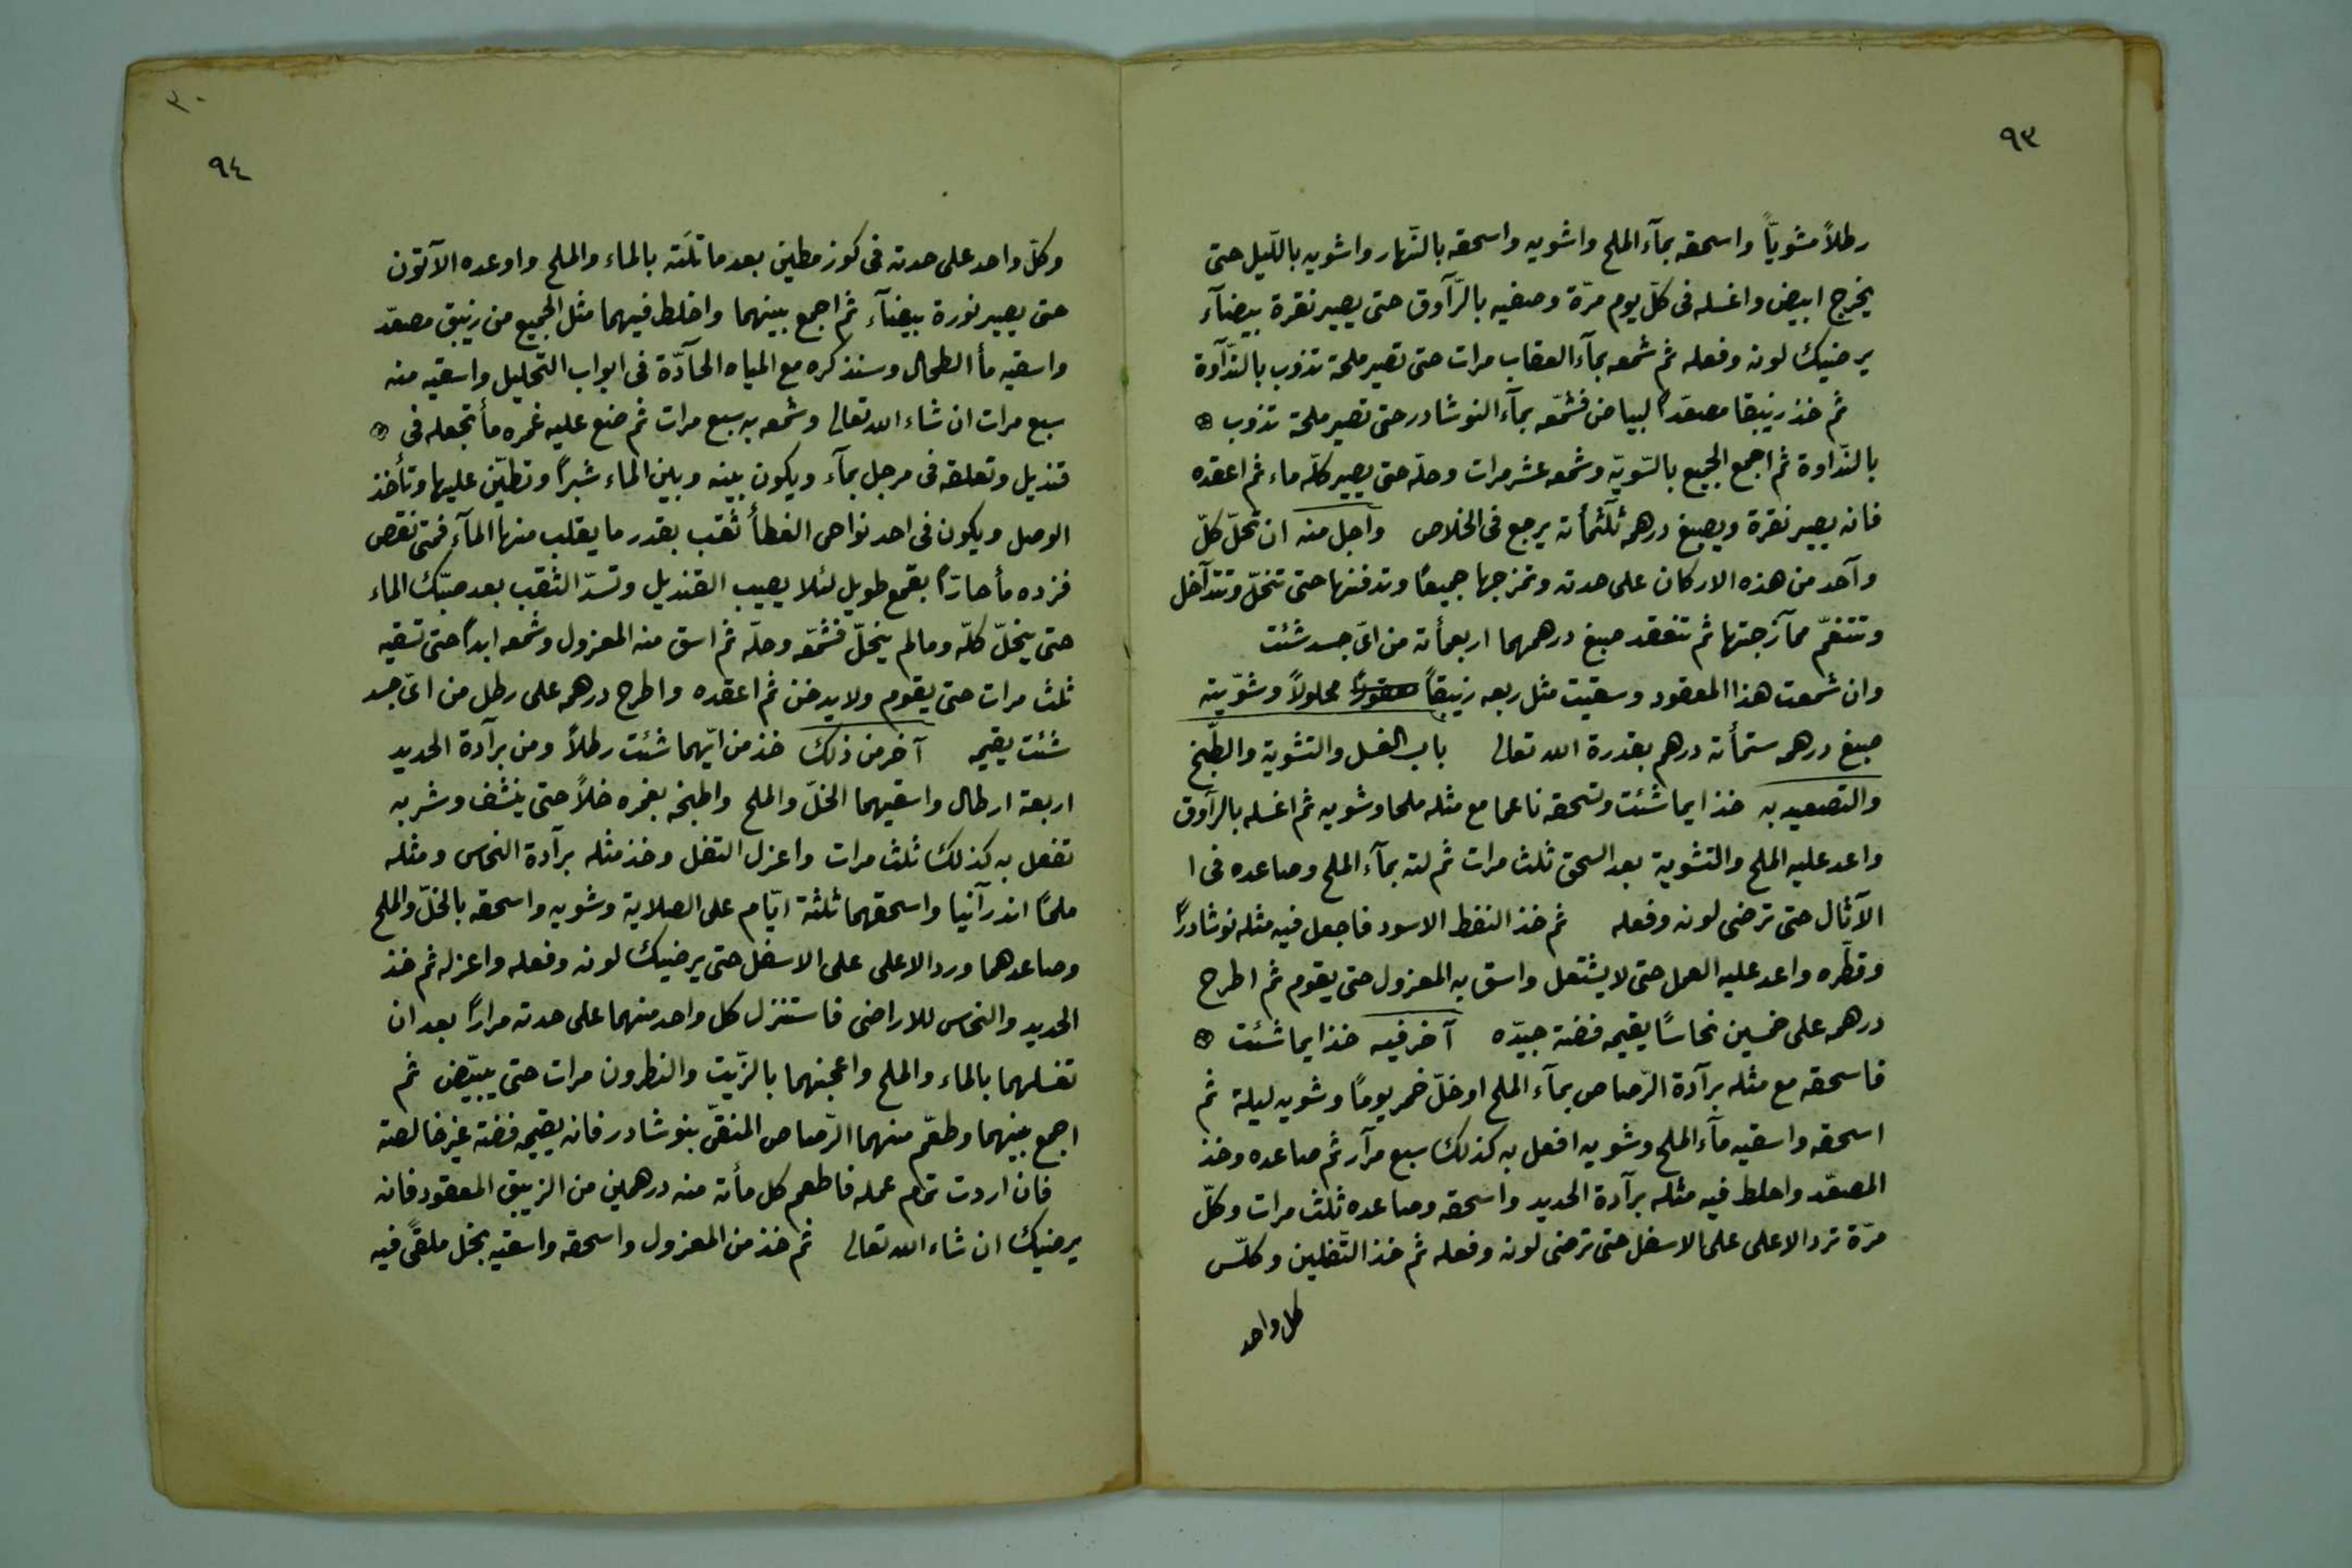 ٩٣
رطلاً مشويّاً واسحقه بمآء الملح واشويه واسحقه بالنّهار واشويه باللّيل حتى
يخرج ابيض واغسله فى كلّ يوم مرّة وصفيه بالرّآوق حتى يصير نقرة بيضآء
يرضيك لونه وفعله ثم شمعه بمآء العقاب مرات حتى تصير ملحة تذوب بالندّآوة
ثم خذ زئبقا مصعّدا لبياض فشمّعه بمآء النوشادر حتى تصير ملحة تذوب
بالندّاوة ثم اجمع الجميع بالسّويّه وشمعه عشر مرات وحلّه حتى يصير كلّه ماء ثم اعقده
فانه يصير نقرة ويصبغ درهمه ثلثمأته يرجع فى الخلاص واجل منه ان تحلّ كلّ
وآحد من هذه الاركان على حدته وتمزجها جميعًا وتدفنها حتى تنحلّ وتتدآخل
وتتنعّم ممآزجتها ثم تنعقد صبغ درهمهما اربعمأته من اىّ جسد شئت
وان شمعت هذا المعقود وسقيت مثل ربعه زئبقاً معقودًا محلولاً وشوّيته
صبغ درهمه ستمأته درهم بقدرة الله تعالى باب الغسل والتشوية والطّبخ
والتصعيد به خذ ايما شئت وتسحقه ناعما مع مثله ملحا وشويه ثم اغسله بالرآوق
واعد عليه الملح والتشوية بعد السحق ثلث مرات ثم لته بمآء الملح وصاعده فى ا
الآثال حتى ترضى لونه وفعله ثم خذ النفط الاسود فاجعل فيه مثله نوشادرًا
وقطّره واعد عليه العمل حتى لا يشتعل واسق به المعزول حتى يقوم ثم اطرح
درهمه على خمسين نحاسًا يقيمه فضته جيدّه آخر فيه خذ ايما شئت
فاسحقه مع مثله برآدة الرّصاص بمآء الملح اوخلّ خمر يومًا وشويه ليلة ثم
اسحقه واسقيه مآء الملح وشويه افعل به كذلك سبع مرآر ثم صاعده وخذ
المصعّد واخلط فيه مثله برآدة الحديد واسحقه وصاعده ثلث مرات وكلّ
مرّة ترد الاعلى على الاسفل حتى ترضى لونه وفعله ثم خذ الثّفلين وكلّس
كل واحد
٣٠
٩٤
وكلّ واحد على حدته فى كوز مطين بعد ما تلَته بالماء والملح واوعده الآتون
حتى يصير نورة بيضآء ثم اجمع بينهما واخلط فيهما مثل الجميع من زيبق مصعّد
واسقيه مأ الطحال وسنذكره مع المياه الحآدّة فى ابواب التحليل واسقيه منه
سبع مرات ان شاء الله تعالى وشمعه به سبع مرات ثم ضع عليه غمره مأ تجعله فى
قنديل وتعلقه فى مرجل بمآء ويكون بينه وبين الماء شبراً وتطيّن عليها وتأخذ
الوصل ويكون فى احد نواحى الغطأ ثقب بقدر ما يقلب منها المآء فمتى نقص
فزده مأ حارّا بقمع طويل لئلا يصيب القنديل وتسدّ الثقب بعد صبّك الماء
حتى ينحلّ كلّه ومالم ينحلّ فشمّعه وحلّه ثم اسق منه المعزول وشمعه ابداً حتى تسقيه
ثلث مرات حتى يقوم ولا يدخن ثم اعقده واطرح درهمه على رطل من اىّ جسد
شئت يقيمه آخر من ذلك خذ من ايّهما شئت رطلاً ومن برآدة الحديد
اربعة ارطال واسقيهما الخلّ والملح واطبخه بغمره خلاً حتى ينشف وشربه
تفعل به كذلك ثلث مرات واعزل الثفل وخذ مثله برآدة النحاس ومثله
ملحًا اندرآنيا واسحقهما ثلثة ايّام على الصلاية وشويه واسحقه بالخلّ والملح
وصاعدهما ورد الاعلى على الاسفل حتى يرضيك لونه وفعله واعزله ثم خذ
الحديد والنحاس للاراضى فاستنزل كل واحد منهما على حدته مرارًا بعد ان
تغسلهما بالماء والملح واعجنهما بالزّيت والنطرون مرات حتى يبيّض ثم
اجمع بينهما وطعّم منهما الرّصاص المنقّى بنوشادر فانه يقيمه فضته غير خالصته
فان اردت تمام عمله فاطعم كل مأته منه درهمين من الزيبق المعقود فانه
يرضيك ان شاء الله تعالى ثم خذ من المعزول واسحقه واسقيه بخل ملقًى فيه